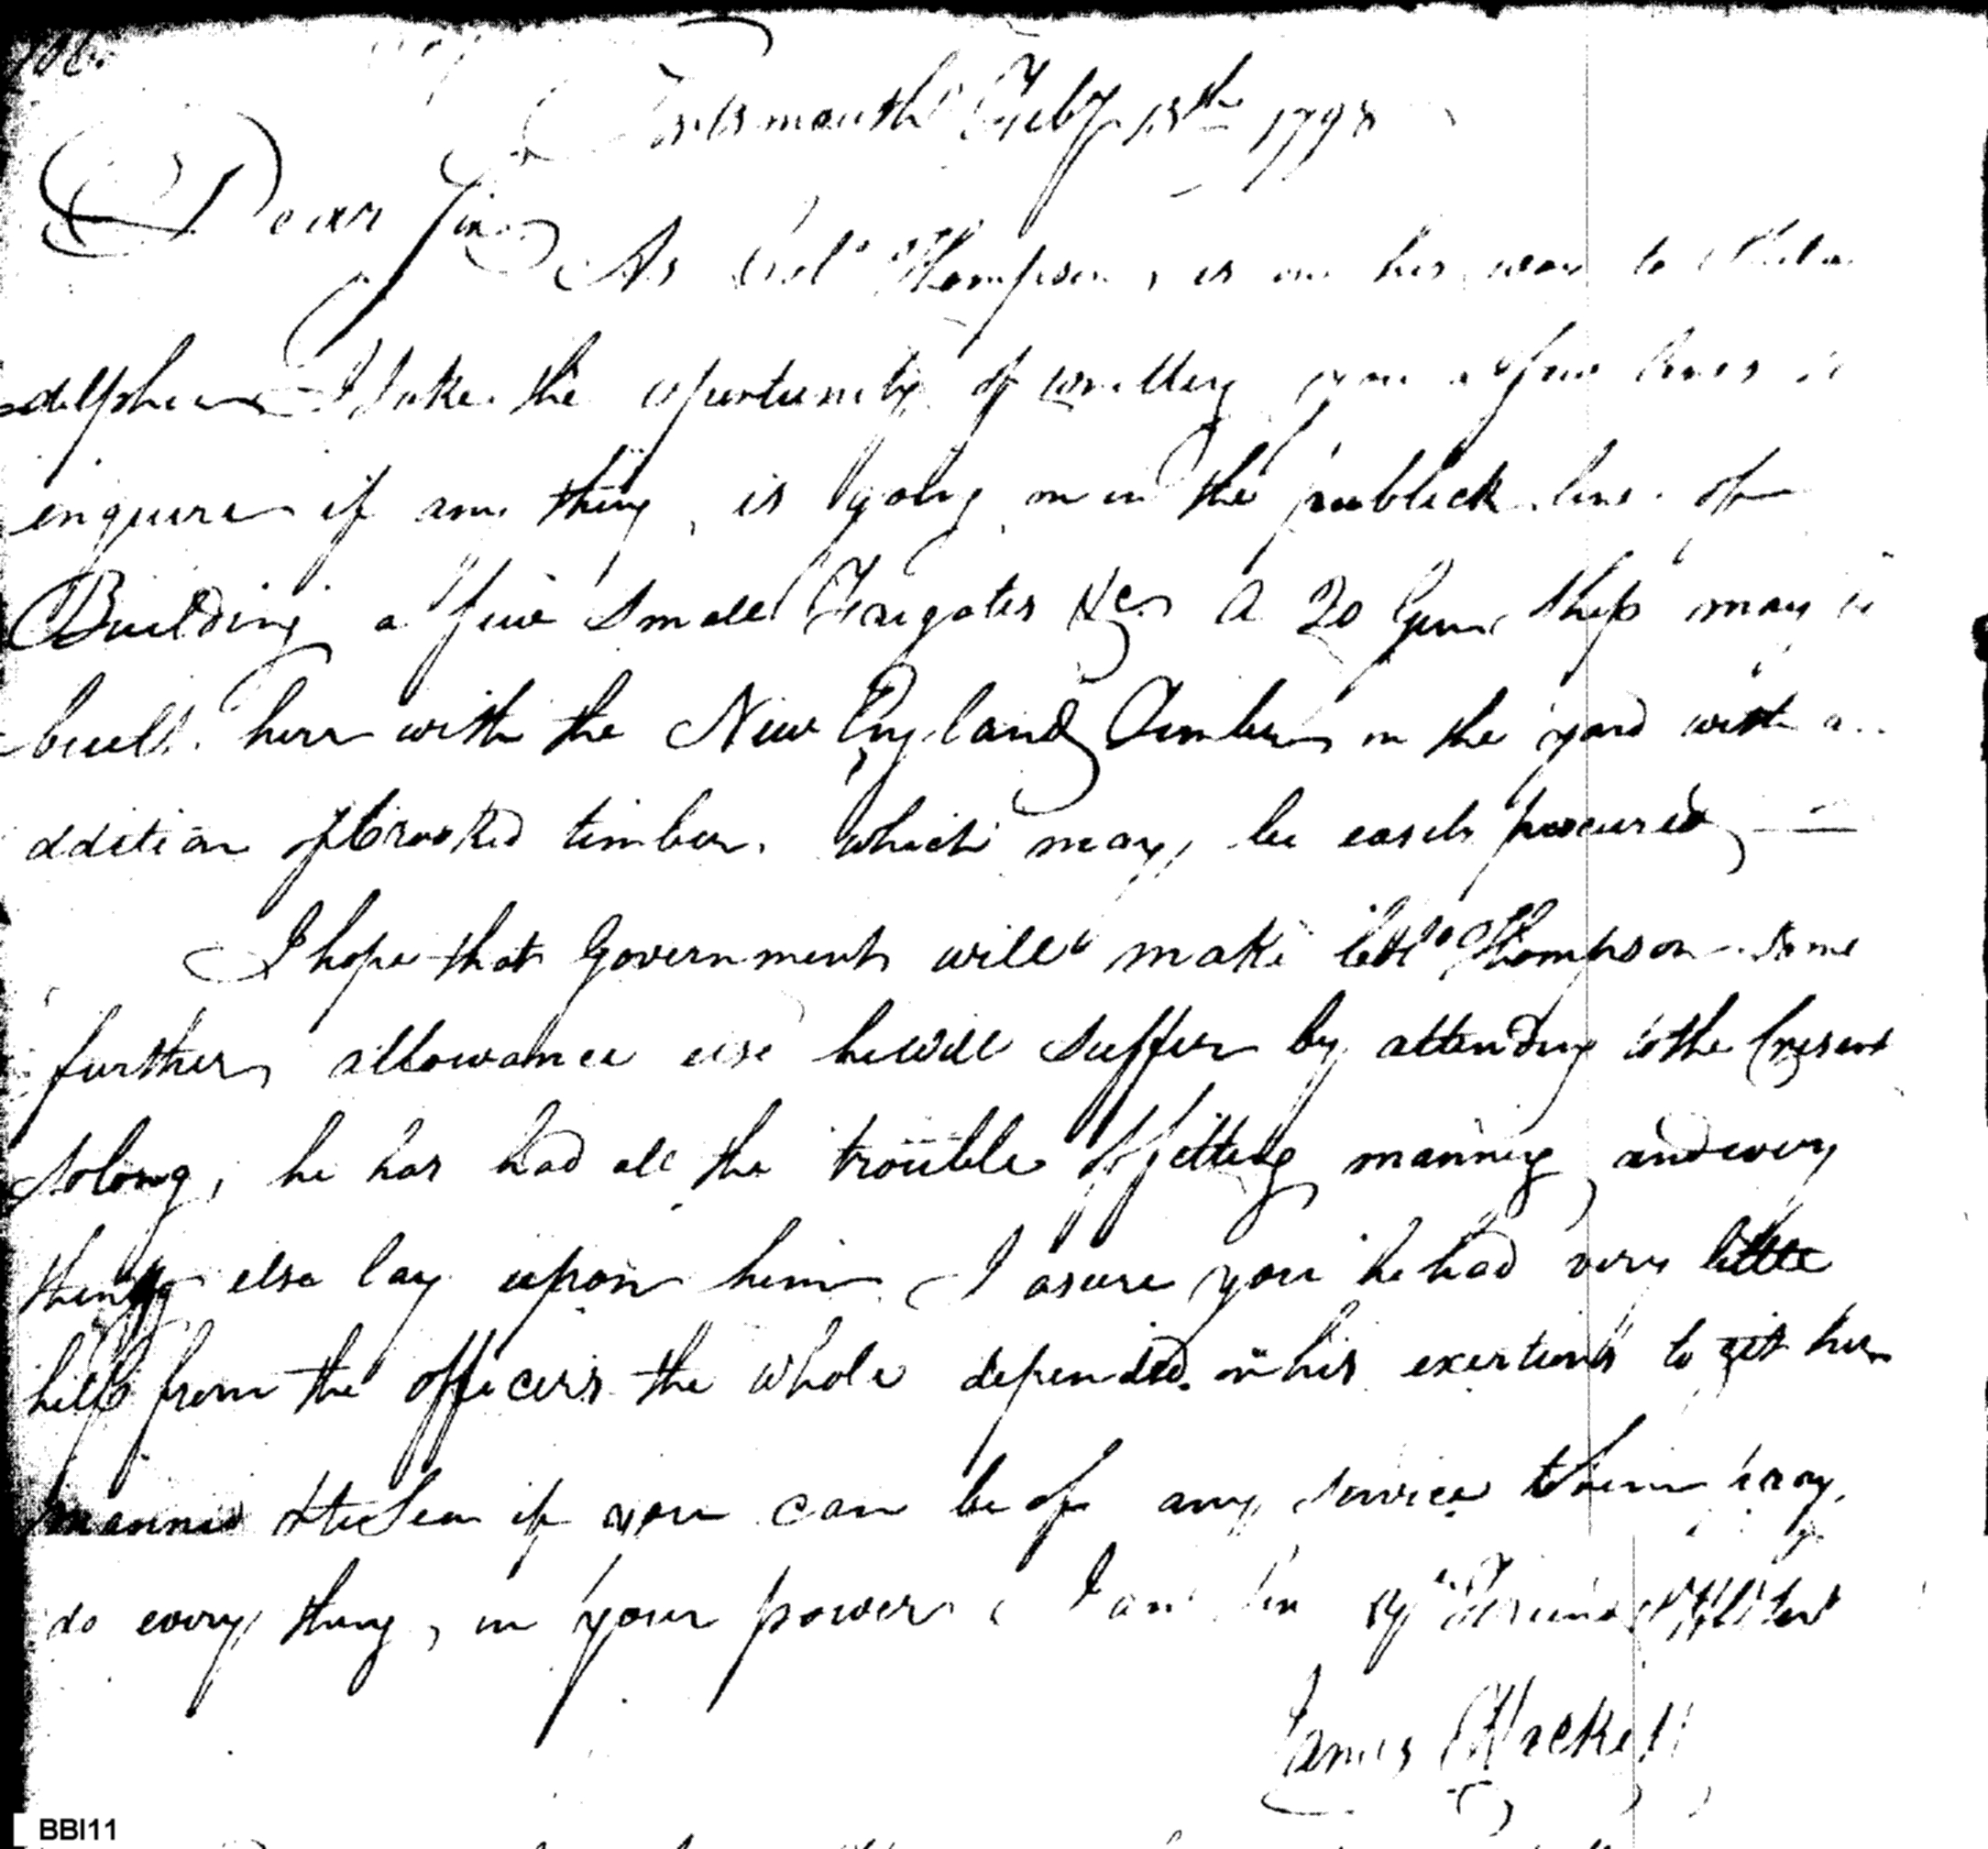 106.
Portsmouth Feby 13th 1798
Dear Sir
As Col° Thompson, is on his way to Phila
delphia I take the oportunity of writting you a few lines
enquire if any thing, is going on in the publick line of
Building a few Small Frigates &c A 20 Gun Ship may
built here with the New England Timber in the yard with a
ddition of Crooked timber. which may, be easily procured
I hope that Government will make Col° Thompson Some
further allowance else he will Suffer by attending to the Cresent
So long, he has had all the trouble of fitting manning and every
thing else lay upon him I asure you he had very little
help from the officers the whole depended on his exertions to git her
manned & to Sea if you can be of any Service to him pray
do every thing, in your power I am Sir yr Friend &
James Hackett
BBI11